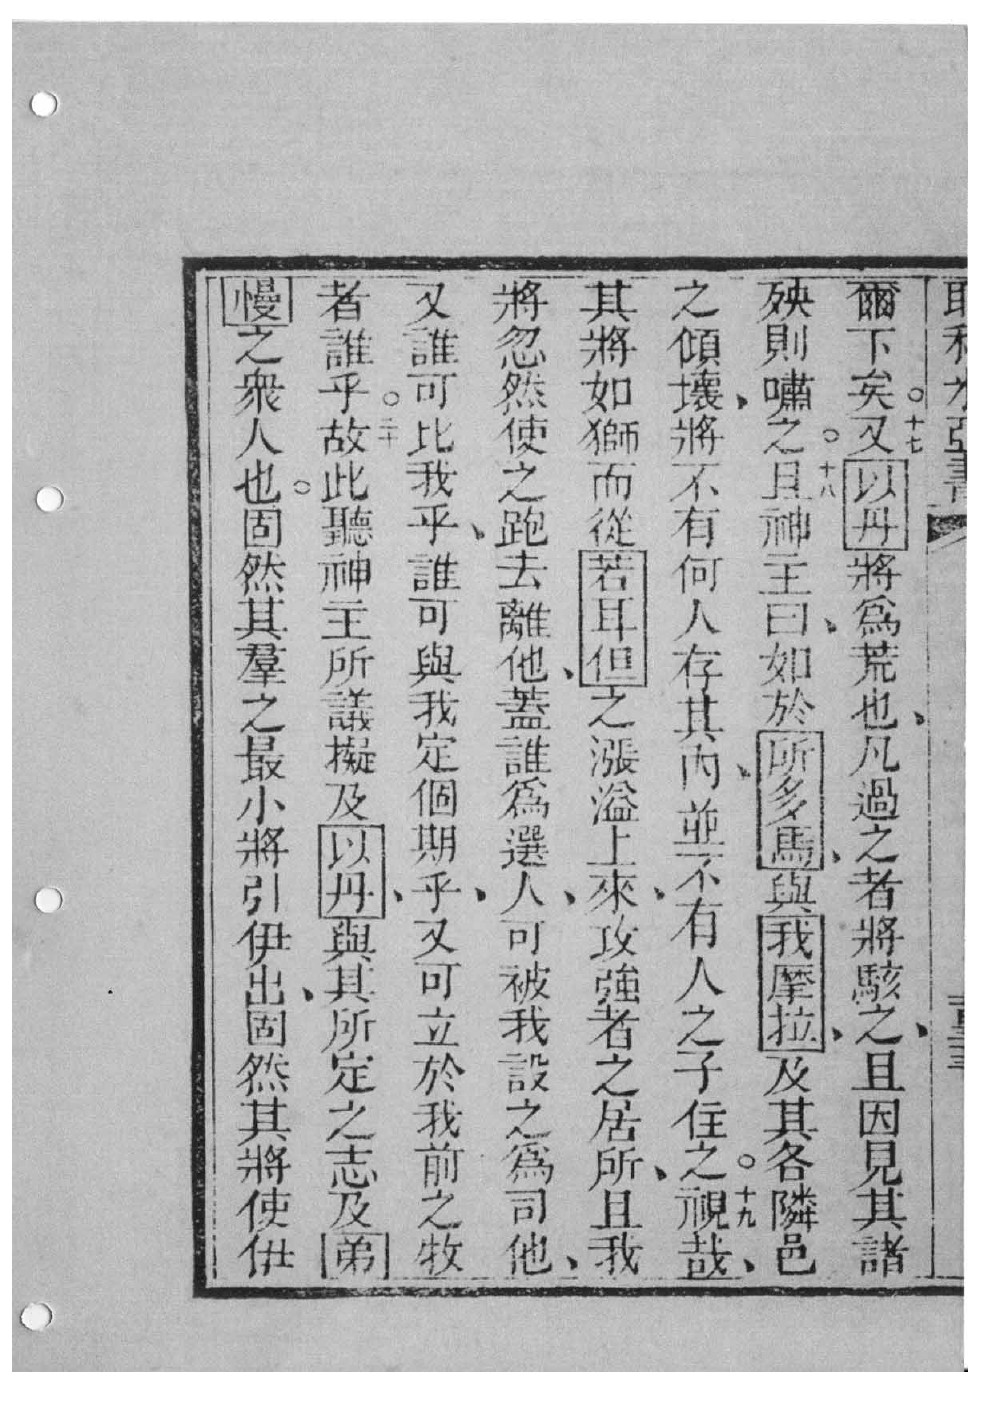 爾下矣。十七又以丹將爲荒也、凡過之者將駭之、且因見其諸
殃則嘯之。十八且神主曰、如於所多馬、與我摩拉、及其各隣邑
之傾壞、將不有何人存其內、並不有人之子住之。十九視哉、
其將如獅而從若耳但之漲溢上來、攻強者之居所、且我
將忽然使之跑去離他、蓋誰爲選人、可被我設之爲司他、
又誰可比我乎、誰可與我定個期乎、又可立於我前之牧
者誰乎。二十故此聽神主所議擬及以丹、與其所定之志及弟
慢之衆人也。固然其羣之最小將引伊出、固然其將使伊